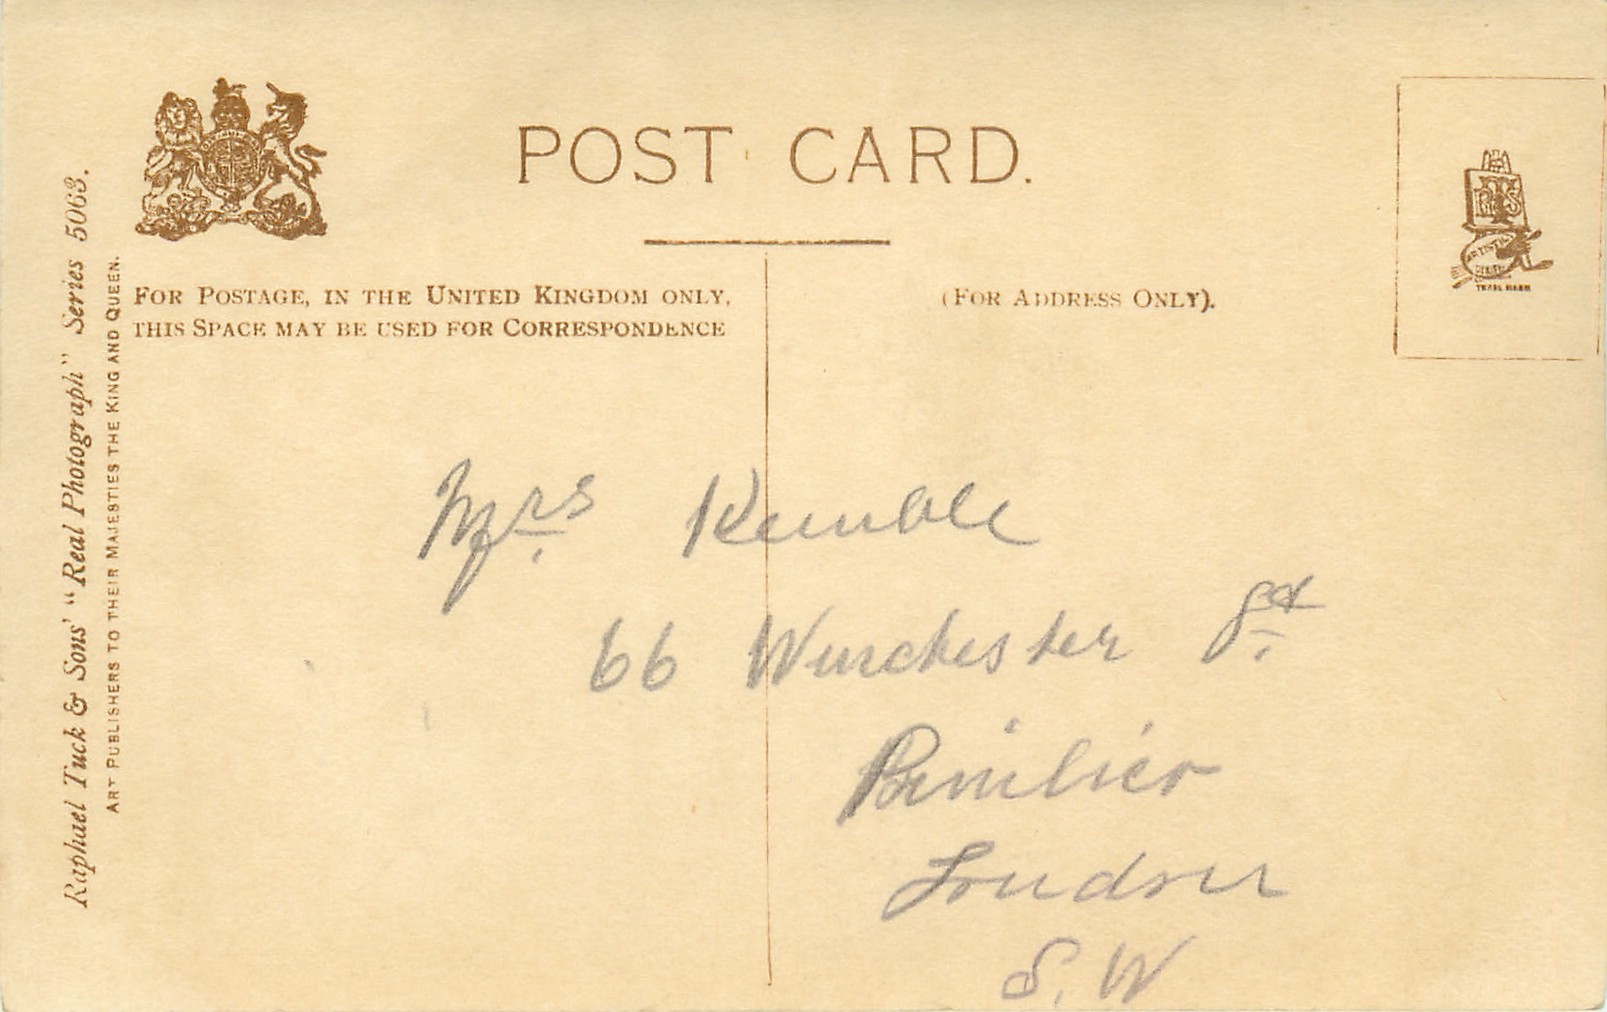 POST CARD.
FOR POSTAGE, IN THE UNITED KINGDOM ONLY,
THIS SPACE MAY BE USED FOR CORRESPONDENCE
(FOR ADDRESS ONLY).
Raphael Tuck & Sons' "Real Photograph" Series 5063.
ART PUBLISHERS TO THEIR MAJESTIES THE KING AND QUEEN.
Mrs Kemble
66 Winchester St
Pimlico
London
S. W